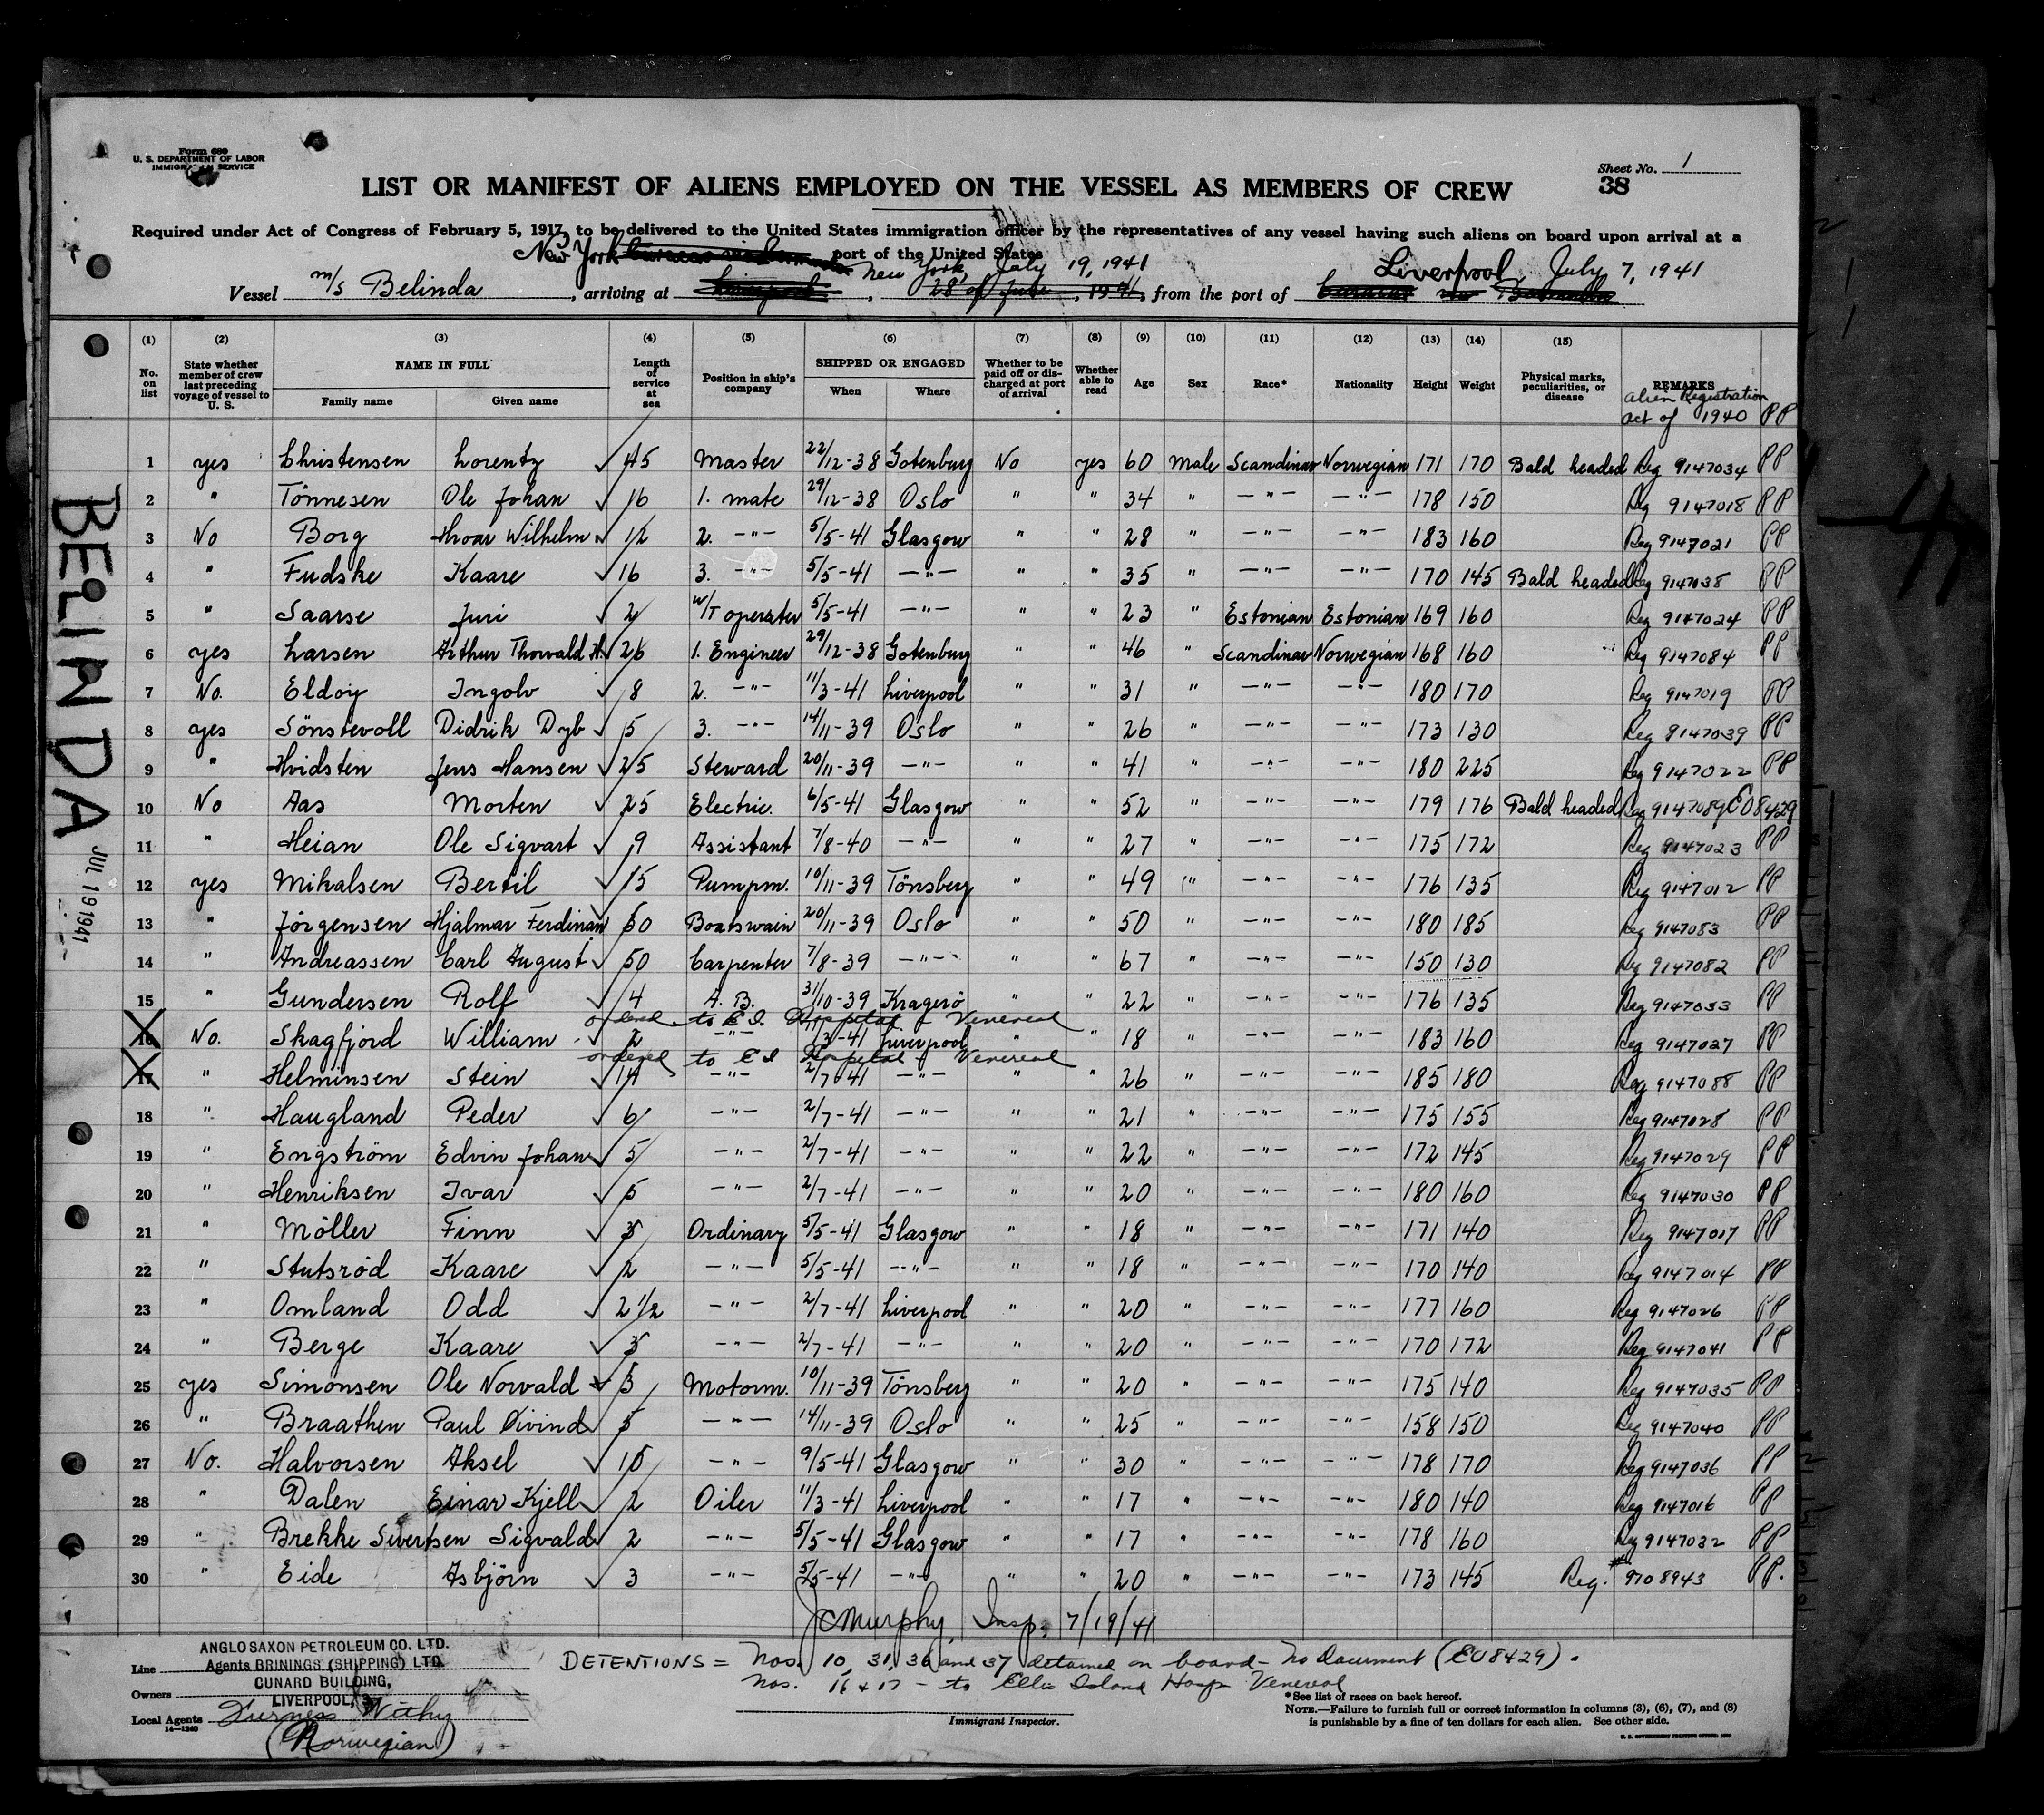 Form 680
U. S. DEPARTMENT OF LABOR
IMMIGRATION SERVICE
Sheet No. 1
38
LIST OR MANIFEST OF ALIENS EMPLOYED ON THE VESSEL AS MEMBERS OF CREW
Required under Act of Congress of February 5, 1917, to be delivered to the United States immigration officer by the representatives of any vessel having such aliens on board upon arrival at a
New York port of the United States
New York, July 19, 1941 Liverpool, July 7, 1941
Vessel m/s Belinda, arriving at Liverpool, 28 of June, 1941, from the port of Curacao via
(1) (2) (3) (4) (5) (6) (7) (8) (9) (10) (11) (12) (13) (14) (15)
No. on list State whether member of crew last preceding voyage of vessel to U. S. NAME IN FULL Family name Given name Length of service at sea Position in ship's company SHIPPED OR ENGAGED When Where Whether to be paid off or discharged at port of arrival Whether able to read Age Sex Race* Nationality Height Weight Physical marks, peculiarities, or disease REMARKS
Alien Registration
act of 1940 PP
1 yes Christensen Lorentz ✓ 45 Master 22/12-38 Gotenburg No yes 60 Male Scandinav Norwegian 171 170 Bald headed Reg 9147034 PP
2 " Tönnesen Ole Johan ✓ 16 1. mate 29/12-38 Oslo " " 34 " -"- -"- 178 150 Reg 9147018 PP
3 No Borg Hroar Wilhelm ✓ 12 2. -"- 5/5-41 Glasgow " " 28 " -"- -"- 183 160 Reg 9147021 PP
4 " Fudske Kaare ✓ 16 3. -"- 5/5-41 -"- " " 35 " -"- -"- 170 145 Bald headed Reg 9147038 PP
5 " Saarse Juri ✓ 2 W/T operater 5/5-41 -"- " " 23 " Estonian Estonian 169 160 Reg 9147024 PP
6 yes Larsen Arthur Thorvald H. 26 1. Engineer 29/12-38 Gotenburg " " 46 " Scandinav Norwegian 168 160 Reg 9147084 PP
7 No. Eldöy Ingolv ✓ 8 2. -"- 11/3-41 Liverpool " " 31 " -"- -"- 180 170 Reg 9147019 PP
8 yes Sönstevoll Didrik Dyb ✓ 5 3. -"- 14/11-39 Oslo " " 26 " -"- -"- 173 130 Reg 9147039 PP
9 " Hvidsten Jens Hansen ✓ 25 Steward 20/11-39 -"- " " 41 " -"- -"- 180 225 Reg 9147022 PP
10 No Aas Morten ✓ 25 Electric. 6/5-41 Glasgow " " 52 " -"- -"- 179 176 Bald headed Reg 9147089 EO8429
11 " Heian Ole Sigvart ✓ 9 Assistant 7/8-40 -"- " " 27 " -"- -"- 175 172 Reg 9147023 PP
12 yes Mikalsen Bertil ✓ 15 Pumpm. 10/11-39 Tönsberg " " 49 " -"- -"- 176 135 Reg 9147012 PP
13 " Jörgensen Hjalmar Ferdinan ✓ 30 Boatswain 20/11-39 Oslo " " 50 " -"- -"- 180 185 Reg 9147083 PP
14 " Andreassen Carl August ✓ 50 Carpenter 7/8-39 -"- " " 67 " -"- -"- 150 130 Reg 9147082 PP
15 " Gundersen Rolf ✓ 4 A. B. 31/10-39 Kragerö " " 22 " -"- -"- 176 135 Reg 9147033 PP
ordered to E.I. Hospital - Venereal
16 No. Skagfjord William 2 -"- 11/3-41 Liverpool " " 18 " -"- -"- 183 160 Reg 9147027 PP
ordered to E I Hospital - Venereal
17 " Helminsen Stein ✓ 14 -"- 2/7-41 -"- " " 26 " -"- -"- 185 180 Reg 9147088 PP
18 " Haugland Peder ✓ 6 -"- 2/7-41 -"- " " 21 " -"- -"- 175 155 Reg 9147028 PP
19 " Engström Edvin Johan ✓ 5 -"- 2/7-41 -"- " " 22 " -"- -"- 172 145 Reg 9147029 PP
20 " Henriksen Ivar ✓ 5 -"- 2/7-41 -"- " " 20 " -"- -"- 180 160 Reg 9147030 PP
21 " Möller Finn ✓ 3 Ordinary 5/5-41 Glasgow " " 18 " -"- -"- 171 140 Reg 9147017 PP
22 " Stutsröd Kaare ✓ 2 -"- 5/5-41 -"- " " 18 " -"- -"- 170 140 Reg 9147014 PP
23 " Omland Odd ✓ 2 1/2 -"- 2/7-41 Liverpool " " 20 " -"- -"- 177 160 Reg 9147026 PP
24 " Berge Kaare ✓ 3 -"- 2/7-41 -"- " " 20 " -"- -"- 170 172 Reg 9147041 PP
25 yes Simonsen Ole Norvald ✓ 3 Motorm. 10/11-39 Tönsberg " " 20 " -"- -"- 175 140 Reg 9147035 PP
26 " Braathen Paul Öivind ✓ 5 -"- 14/11-39 Oslo " " 25 " -"- -"- 158 150 Reg 9147040 PP
27 No. Halvorsen Aksel ✓ 10 -"- 9/5-41 Glasgow " " 30 " -"- -"- 178 170 Reg 9147036 PP
28 " Dalen Einar Kjell ✓ 2 Oiler 11/3-41 Liverpool " " 17 " -"- -"- 180 140 Reg 9147016 PP
29 " Brekke Sivertsen Sigvald ✓ 2 -"- 5/5-41 Glasgow " " 17 " -"- -"- 178 160 Reg 9147032 PP
30 " Eide Asbjörn ✓ 3 -"- 5/5-41 -"- " " 20 " -"- -"- 173 145 Reg. # 9708943 PP.
JCMurphy, Insp. 7/19/41
BELINDA
JUL 19 1941
Line ANGLO SAXON PETROLEUM CO. LTD.
Agents BRININGS (SHIPPING) LTD.
Owners CUNARD BUILDING,
LIVERPOOL, 3
Local Agents Furness Withy
14-1240
(Norwegian)
DETENTIONS = Nos. 10, 31, 36 and 37 detained on board - No Document (EO8429).
Nos. 16 & 17 - to Ellis Island Hosp Venereal
Immigrant Inspector.
*See list of races on back hereof.
NOTE.—Failure to furnish full or correct information in columns (3), (6), (7), and (8)
is punishable by a fine of ten dollars for each alien. See other side.